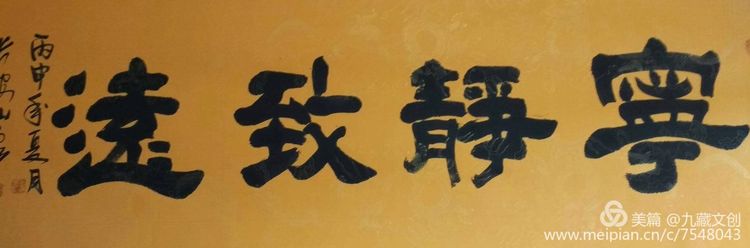 寧靜致遠
丙申年夏月
美篇 @九藏文创
www.meipian.cn/c/7548043